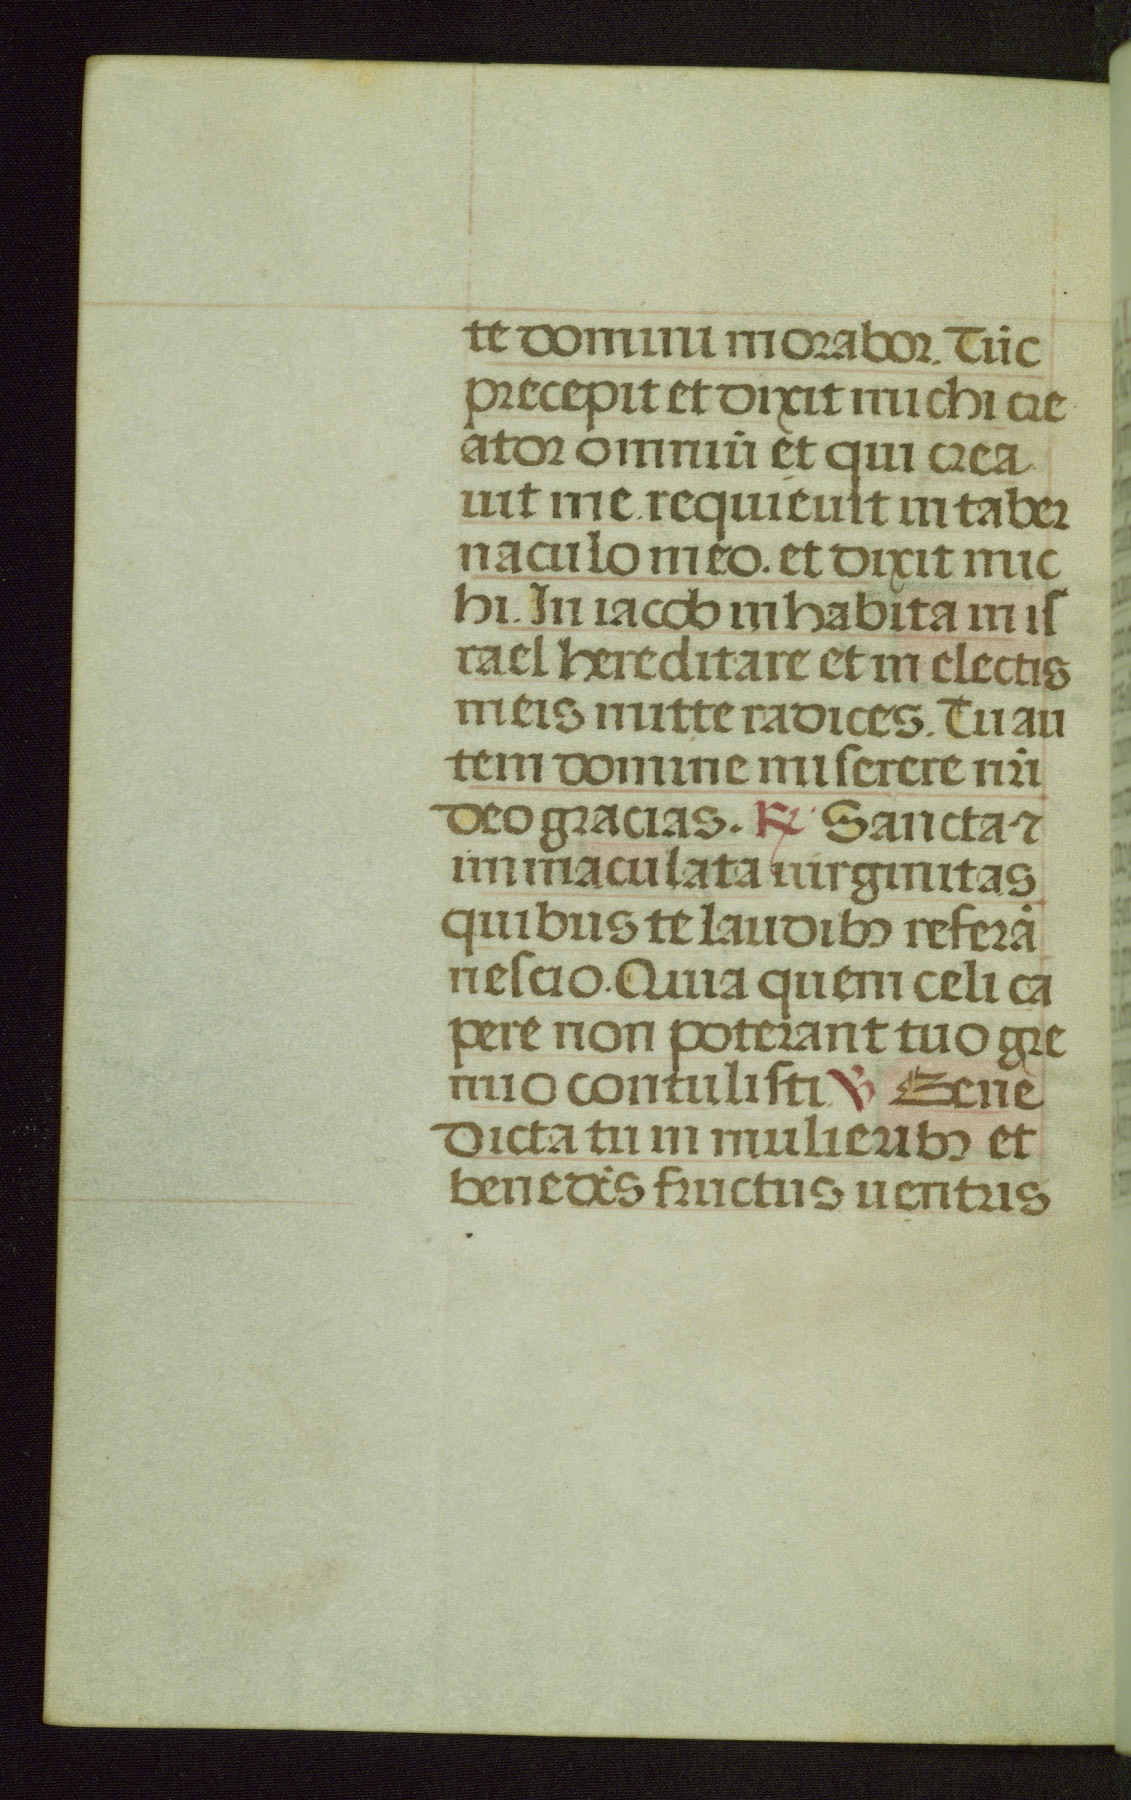 te domini morabor. Tūc
precepit et dixit michi cre
ator omniū et qui crea
uit me. requieuit in taber
naculo meo. et dixit mic
hi. In iacob inhabita in iſ
rael hereditare et in electis
meis mitte radices. Tu au
tem domine miſerere nr̄i
deo gracias. ℟ Sancta ⁊
inmaculata uirginitas
quibus te laudibꝫ referā
neſcio. Quia quem celi ca
pere non poterant tuo gre
mio contuliſti ℣ Bene
dicta tu in mulieribꝫ et
benedc̄s fructus uentris